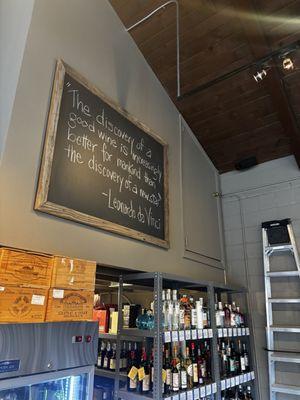 "The discovery of a
good wine is increasingly
better for mankind than
the discovery of a new star"
-Leonardo da Vinci